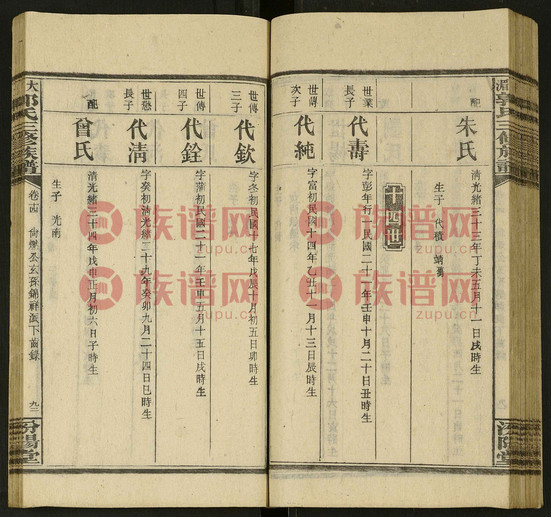 配 朱氏 清光緒三十三年丁未五月十一日戌時生
生子 代積
十四世
世業長子 代壽 字彭年行一民國二十一年壬申十月二十日丑時生
次子 代純 字富初民國十四年乙丑十一月十三日辰時生
世傳三子 代欽 字冬初民國十七年戊辰十月初五日卯時生
世傳四子 代銓 字蘭初民國二十一年壬申五月十五日戌時生
世愁長子 代清 字癸初清光緒二十九年癸卯九月二十四日巳時生
配 曾氏 清光緒三十四年戊申正月初六日子時生
生子 光南
大 郭氏三修族譜 卷十四 下齒錄 九三 汾陽堂
郭氏三修族譜 汾陽堂
族谱网
zupu.cn
族谱网
zupu.cn
族谱网
zupu.cn
族谱网
zupu.cn